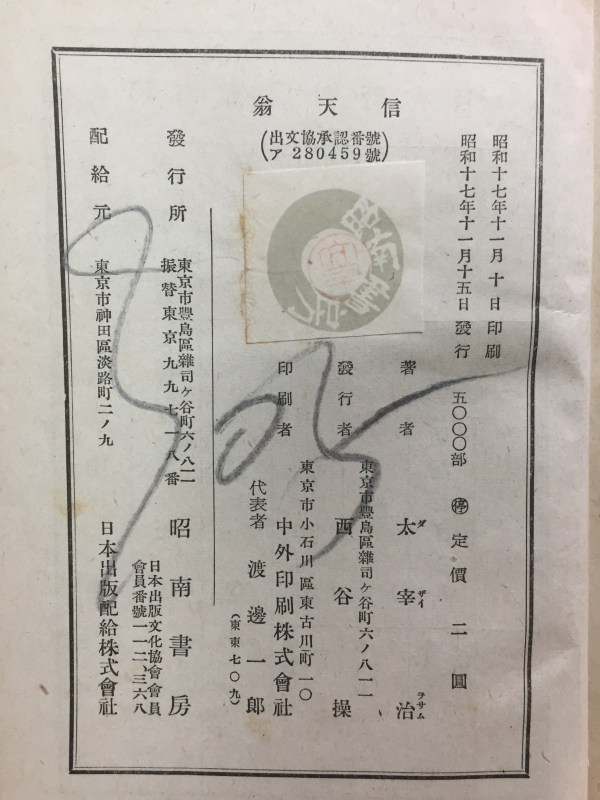 信天翁
(出文協承認番號
ア 280459號)
昭和十七年十一月 十 日 印刷
昭和十七年十一月十五日 發行
五〇〇〇部 ㊡ 定價 二圓
著者 太宰治
ダザイ ヲサム
東京市豐島區雜司ヶ谷町六ノ八一一
發行者 西谷操
東京市小石川區東古川町一〇
印刷者 中外印刷株式會社
代表者 渡邊一郎
(東東七〇九)
東京市豐島區雜司ヶ谷町六ノ八一一
發行所 昭南書房
振替東京九九七一八番
日本出版文化協會會員
會員番號一一二、三六八
配給元 東京市神田區淡路町二ノ九 日本出版配給株式會社